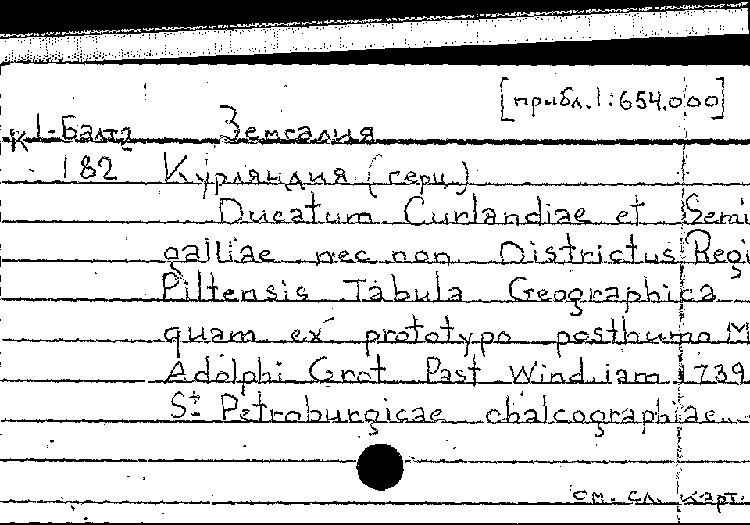 [прибл. 1:654.000]
К 1-Балт2 Земгалия
182 Курляндия (герц)
Ducatum Curlandiae et Semi
galliae nec non Districtus Regi
Piltensis Tabula Geographica
quam ex prototypo posthumo M
Adolphi Grot Past Wind. iam 1739
St Petroburgicae chalcographiae.
см. сл. карт.